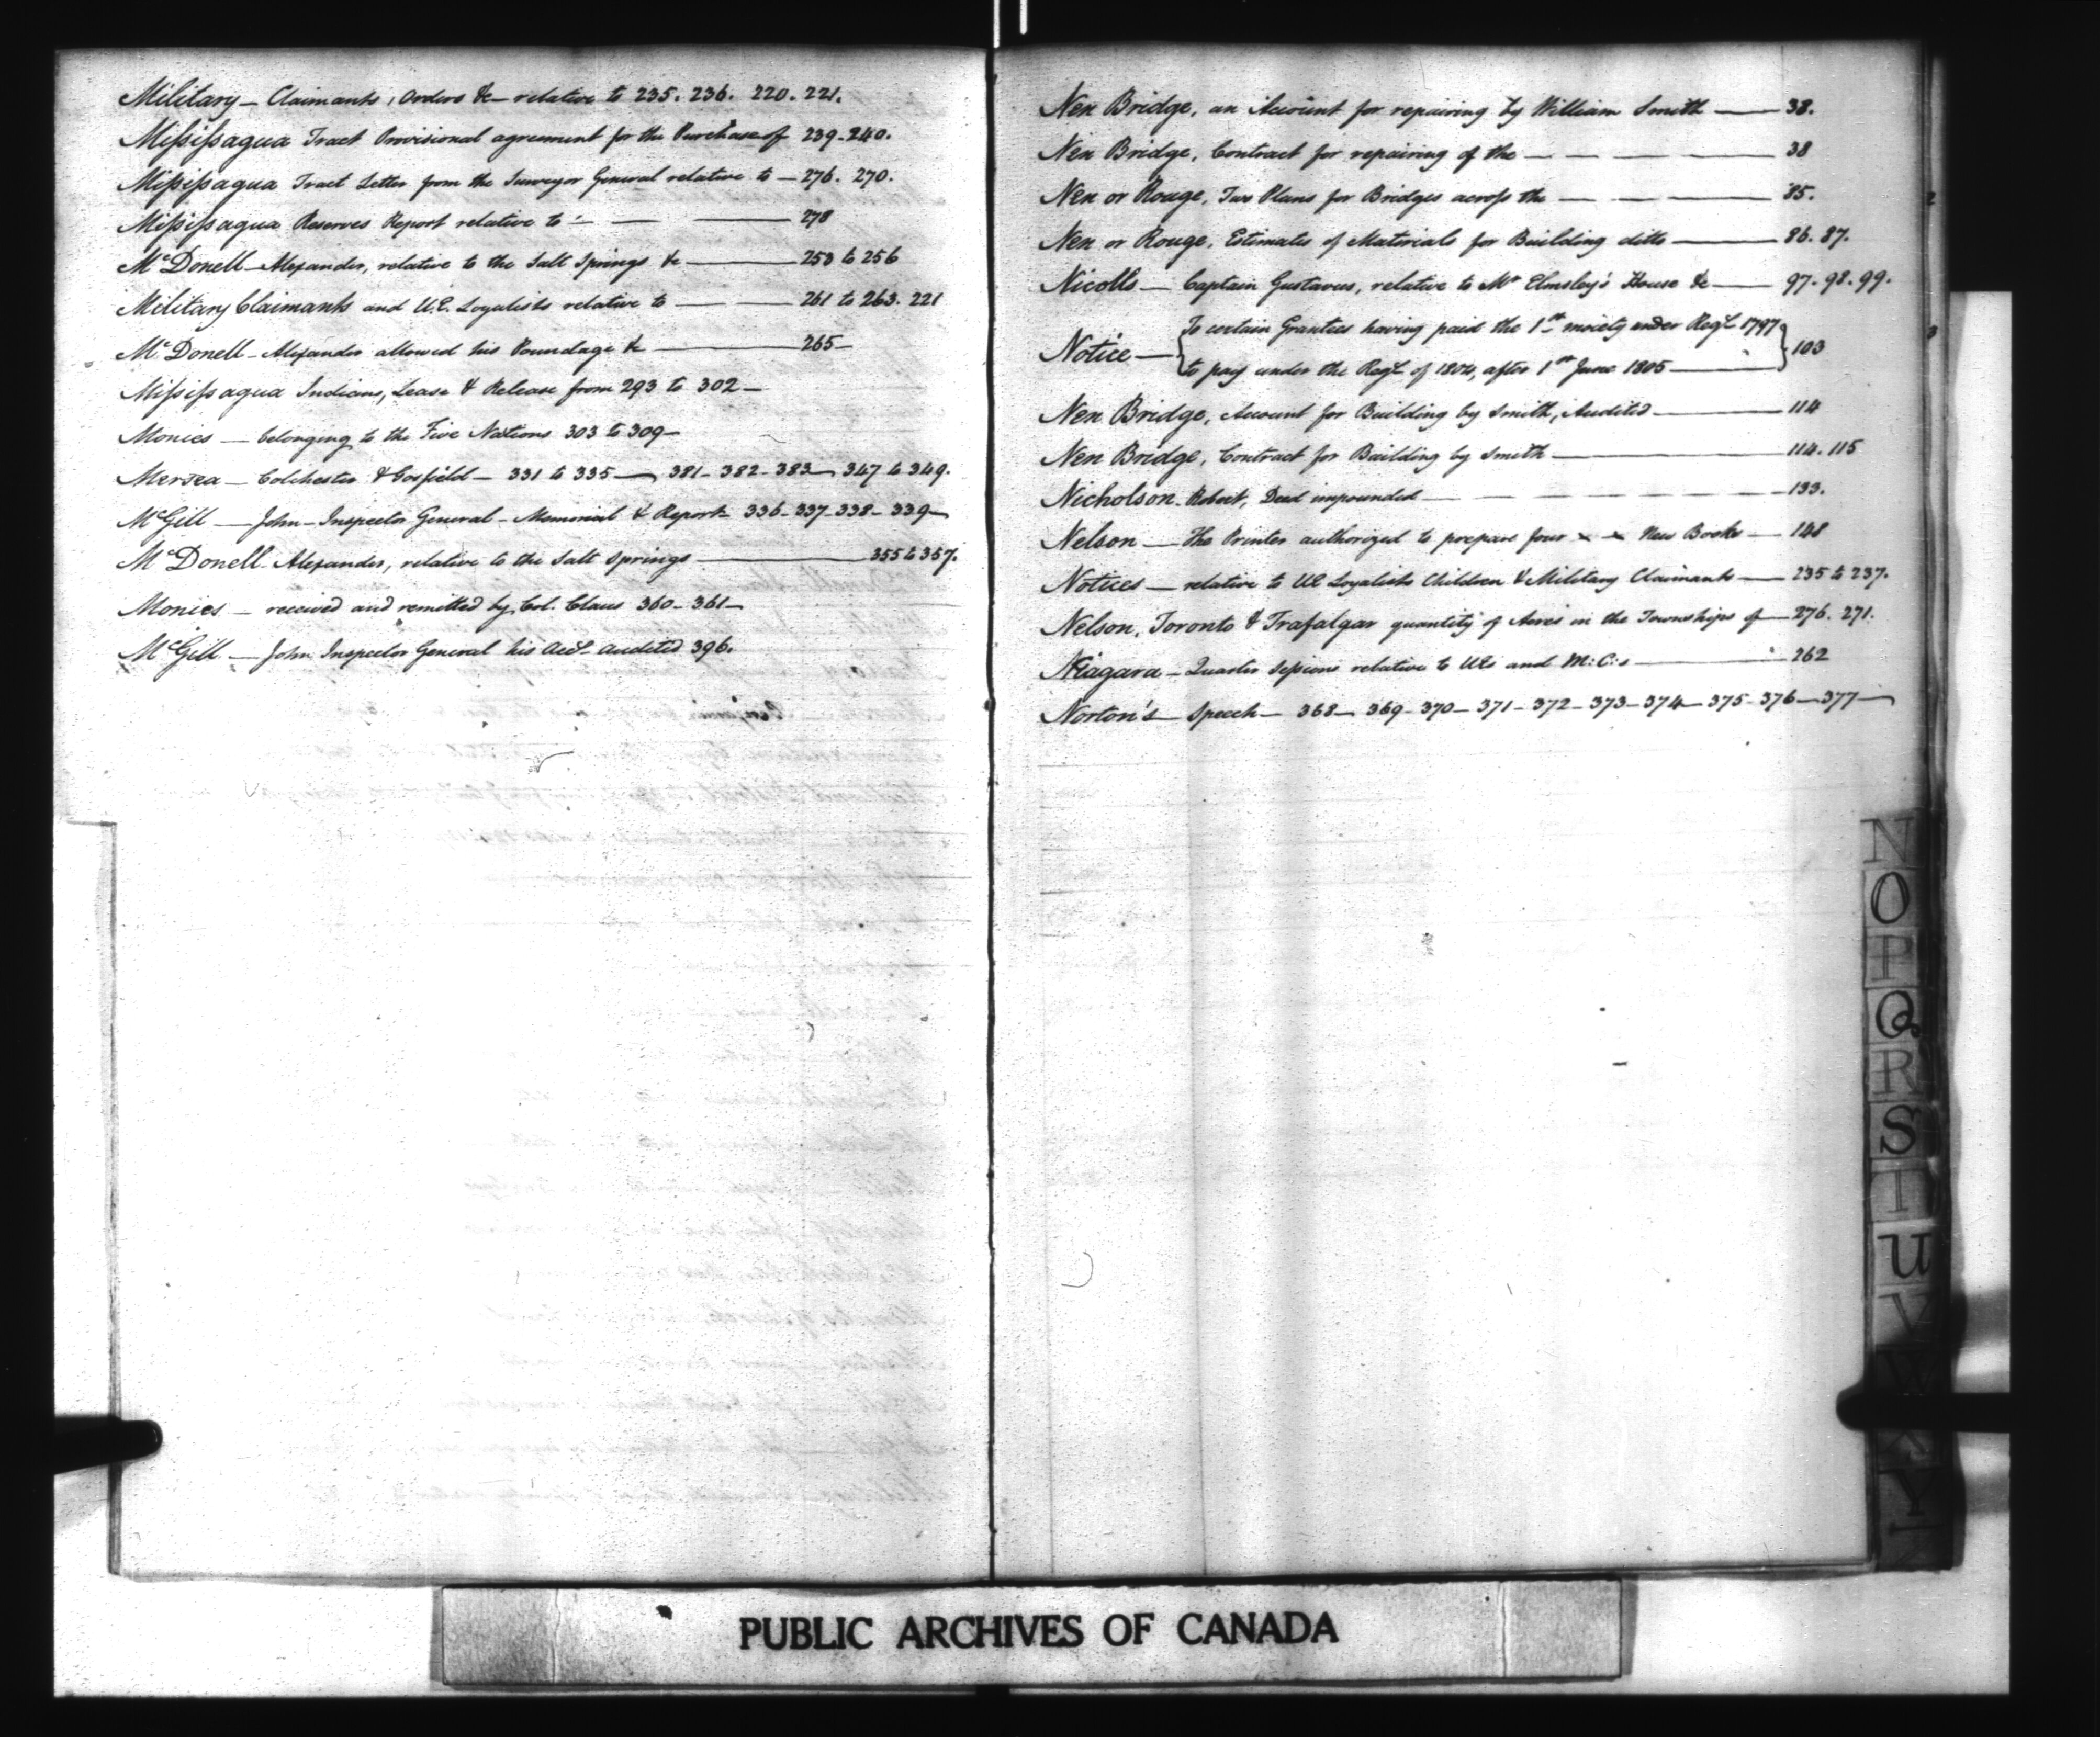 Military — Claimants, Orders &c — relative to 235. 236. 220. 221.
Missisagua Tract Provisional agreement for the Purchase of 239-240.
Missisagua Tract Letter from the Surveyor General relative to — 276. 270.
Missisagua Reserves Report relative to — 278
McDonell — Alexander, relative to the Salt Springs &c — 253 to 256
Military Claimants and U.E. Loyalists relative to — 261 to 263. 221
McDonell — Alexander allowed his Poundage &c — 265 —
Missisagua Indians, Lease & Release from 293 to 302 —
Monies — belonging to the Five Nations 303 to 309 —
Mersea — Colchester & Gosfield — 331 to 335 — 381 - 382 - 383 — 347 to 349.
McGill — John — Inspector General — Memorial & Report 336 - 337 - 338 - 339 —
McDonell — Alexander, relative to the Salt Springs — 355 to 357.
Monies — received and remitted by Col. Claus 360 - 361 —
McGill — John Inspector General his Acct. audited 396.
Nen Bridge, an Account for repairing by William Smith — 38.
Nen Bridge, Contract for repairing of the — 38
Nen or Rouge, Two Plans for Bridges across the — 85.
Nen or Rouge, Estimates of Materials for Building ditto — 86. 87.
Nicolls — Captain Gustavus, relative to Mr Elmsley's House &c — 97. 98. 99.
To certain Grantees having paid the 1st moiety under Regl. 1797
Notice — 103
to pay under the Regl. of 1804, after 1st June 1805 —
Nen Bridge, Account for Building by Smith, Audited — 114
Nen Bridge, Contract for Building by Smith — 114. 115
Nicholson — Robert, Deed impounded — 133.
Nelson — The Printer authorized to prepare four x x New Books — 148
Notices — relative to UE Loyalists Children & Military Claimants — 235 to 237.
Nelson, Toronto & Trafalgar quantity of Acres in the Townships of — 276. 271.
Niagara — Quarter Sessions relative to UEs and M:C:s — 262
Norton's — Speech — 368 — 369 - 370 — 371 - 372 - 373 - 374 — 375 - 376 — 377 —
N
O
P
Q
R
S
T
U
V
W
X
Y
Z
PUBLIC ARCHIVES OF CANADA